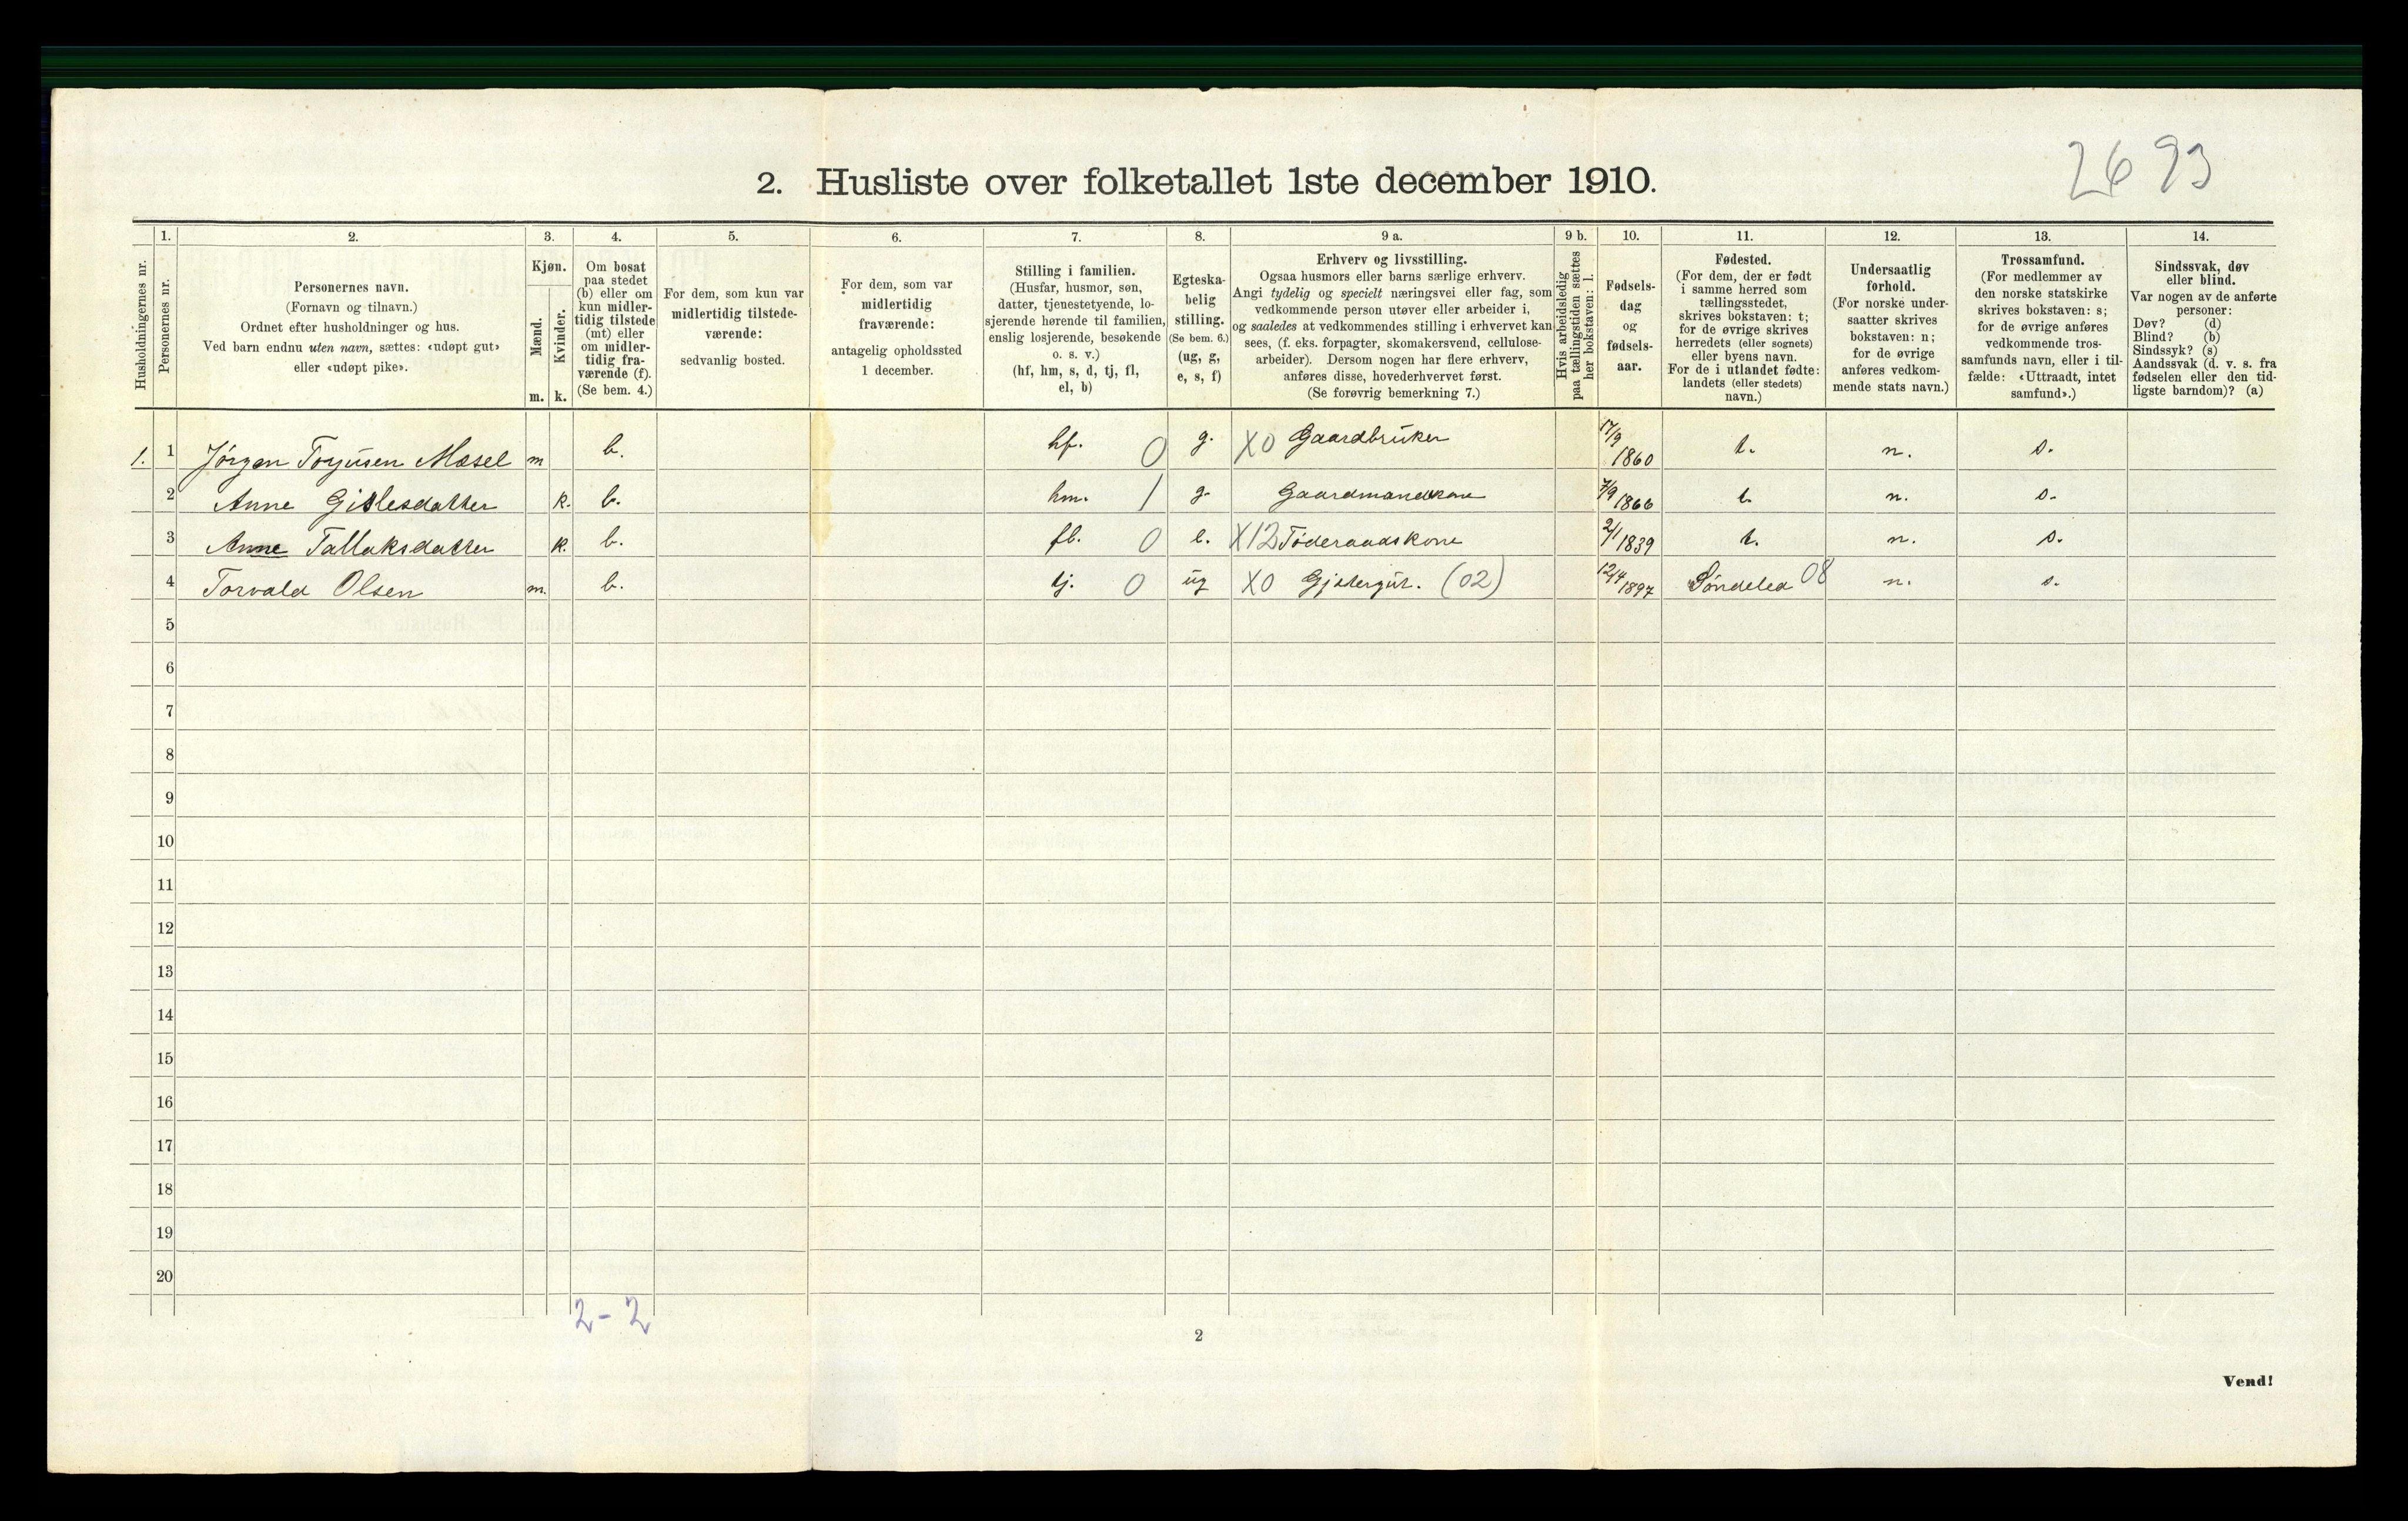 2693
2. Husliste over folketallet 1ste december 1910.
Husholdningernes nr.
1.
Personernes nr.
2.
Personernes navn.
(Fornavn og tilnavn.)
Ordnet efter husholdninger og hus.
Ved barn endnu uten navn, sættes: «udøpt gut»
eller «udøpt pike».
3.
Kjøn.
Mænd.
Kvinder.
m. k.
4.
Om bosat
paa stedet
(b) eller om
kun midler-
tidig tilstede
(mt) eller
om midler-
tidig fra-
værende (f).
(Se bem. 4.)
5.
For dem, som kun var
midlertidig tilstede-
værende:
sedvanlig bosted.
6.
For dem, som var
midlertidig
fraværende:
antagelig opholdssted
1 december.
7.
Stilling i familien.
(Husfar, husmor, søn,
datter, tjenestetyende, lo-
sjerende hørende til familien,
enslig losjerende, besøkende
o. s. v.)
(hf, hm, s, d, tj, fl,
el, b)
8.
Egteska-
belig
stilling.
(Se bem. 6.)
(ug, g,
e, s, f)
9 a.
Erhverv og livsstilling.
Ogsaa husmors eller barns særlige erhverv.
Angi tydelig og specielt næringsvei eller fag, som
vedkommende person utøver eller arbeider i,
og saaledes at vedkommendes stilling i erhvervet kan
sees, (f. eks. forpagter, skomakersvend, cellulose-
arbeider). Dersom nogen har flere erhverv,
anføres disse, hovederhvervet først.
(Se forøvrig bemerkning 7.)
9 b.
Hvis arbeidsledig
paa tællingstiden sættes
her bokstaven: l.
10.
Fødsels-
dag
og
fødsels-
aar.
11.
Fødested.
(For dem, der er født
i samme herred som
tællingsstedet,
skrives bokstaven: t;
for de øvrige skrives
herredets (eller sognets)
eller byens navn.
For de i utlandet fødte:
landets (eller stedets)
navn.)
12.
Undersaatlig
forhold.
(For norske under-
saatter skrives
bokstaven: n;
for de øvrige
anføres vedkom-
mende stats navn.)
13.
Trossamfund.
(For medlemmer av
den norske statskirke
skrives bokstaven: s;
for de øvrige anføres
vedkommende tros-
samfunds navn, eller i til-
fælde: «Uttraadt, intet
samfund».)
14.
Sindssvak, døv
eller blind.
Var nogen av de anførte
personer:
Døv? (d)
Blind? (b)
Sindssyk? (s)
Aandssvak (d. v. s. fra
fødselen eller den tid-
ligste barndom)? (a)
1. 1 Jörgen Torjusen Mæsel m b. hf. 0 g. X0 Gaardbruker 17/9 1860 t. n. s.
2 Anne Gislesdatter k. b. hm. 1 g. Gaardmandskone 7/9 1866 t. n. s.
3 Anne Tallaksdatter k. b. fl. 0 e. X12 Föderaadskone 2/1 1839 t. n. s.
4 Torvald Olsen m. b. tj. 0 ug X0 Gjætergut. (02) 12/4 1897 Söndeled 08 n. s.
5
6
7
8
9
10
11
12
13
14
15
16
17
18
19
20
2-2
2
Vend!